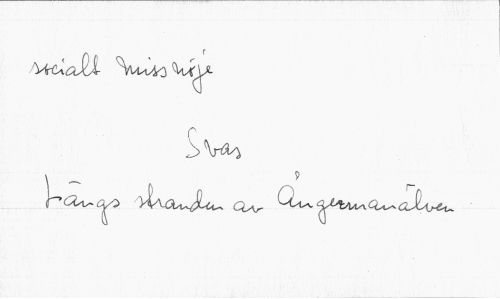 socialt missnöje
Svas
Längs stranden av Ångermanälven